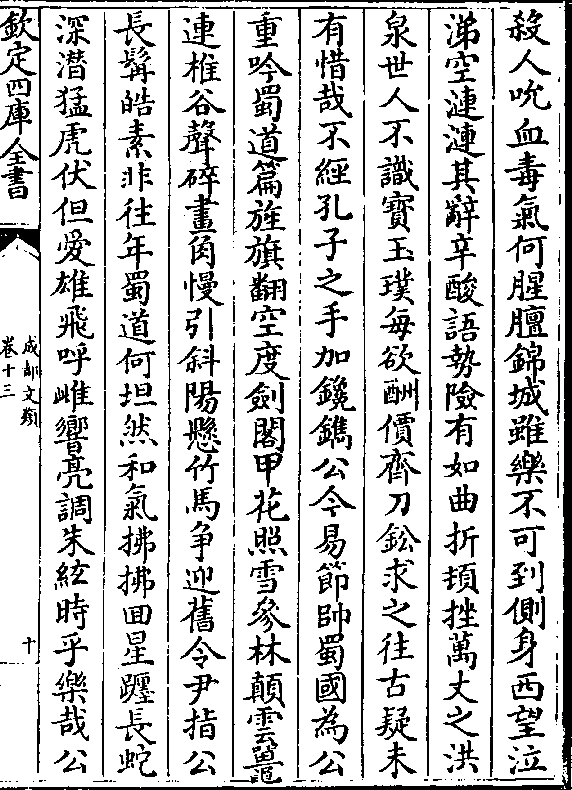 殺人吮血毒氣何腥膻錦城雖樂不可到側身西望泣
涕空漣漣其辭辛酸語勢險有如曲折頓挫萬丈之洪
泉世人不識寶玉璞每欲酬價齊刀鈆求之往古疑未
有惜哉不經孔子之手加鑱鐫公今易節帥蜀國為公
重吟蜀道篇旌旗翻空度劍閣甲花照雪參林顛雲鼉
連椎谷聲碎畫角慢引斜陽懸竹馬争迎舊令尹指公
長髯皓素非往年蜀道何坦然和氣拂拂回星躔長蛇
深潜猛虎伏但愛雄飛呼雌響亮調朱絃時乎樂哉公
欽定四庫全書
成都文類
卷十三
十